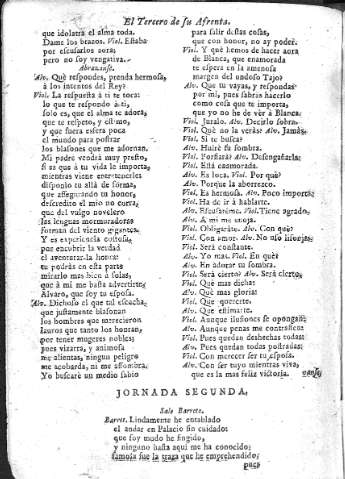 El Tercero de su Afrenta.
que idolatra el alma toda.
Dame los brazos. Viol. Estaba
por escusarlos aora;
pero no soy vengativa.
Abrazanse.
Alv. Què respondes, prenda hermosa,
à los intentos del Rey?
Viol. La respuesta à ti te toca:
lo que te respondo à ti,
solo es, que el alma te adora,
que te respeto, y estimo,
y que fuera esfera poca
el mundo para postrar
los blasones que me adornan.
Mi padre vendrà muy presto,
si es que à tu vida le importa,
mientras viene entretenerles
disponlo tu allà de forma,
que assegurando tu honor,
descredito el mio no corra,
que del vulgo novelero
las lenguas murmuradoras
forman del viento gigantes.
Y es experiencia costosa,
por encubrir la verdad
el aventurar la honra:
tu podràs en esta parte
mirarlo mas bien à solas,
que à mi me basta advertirte,
Alvaro, que soy tu esposa.
Alv. Dichoso el que tal escucha,
que justamente blasonan
los hombres que merecieron
lauros que tanto los honran,
por tener mugeres nobles;
pues vizarra, y animosa
me alientas, ningun peligro
me acobarda, ni me assombra.
Yo buscarè un medio sabio
para salir destas cosas,
que con honor, no ay poder.
Viol. Y què hemos de hacer aora
de Blanca, que enamorada
te espera en la amenosa
margen del undoso Tajo
Alv. Que tu vayas, y respondas
por mi, pues sabràs hacerlo
como cosa que te importa,
que yo no he de vèr à Blanca.
Viol. Juralo. Alv. Decirlo sobra.
Viol. Què no la veràs? Alv. Jamàs.
Viol. Si te busca?
Alv. Huirè su sombra.
Viol. Porfiarà? Alv. Desengañarla.
Viol. Està enamorada.
Alv. Es loca. Viol. Por què?
Alv. Porque la aborrezco.
Viol. Es hermosa. Alv. Poco importa.
Viol. Ha de ir à hablarte.
Alv. Escusarème. Viol. Tiene agrado.
Alv. A mi me enoja.
Viol. Obligaràte. Alv. Con què?
Viol. Con amor. Alv. No uso lisonjas.
Viol. Serà constante.
Alv. Yo mas. Viol. En què?
Alv. En adorar tu sombra.
Viol. Serà cierto? Alv. Serà cierto.
Viol. Què mas dicha?
Alv. Què mas gloria?
Viol. Que quererte.
Alv. Que estimarte.
Viol. Aunque ilusiones se opongan;
Alv. Aunque penas me contrasten:
Viol. Pues quedan deshechas todas:
Alv. Pues quedan todas postradas:
Viol. Con merecer ser tu esposa.
Alv. Con ser tuyo mientras viva,
que es la mas feliz victoria. vanse.
JORNADA SEGUNDA.
Sale Barreto.
Barret. Lindamente he entablado
el andar en Palacio sin cuidado:
que soy mudo he fingido,
y ninguno hasta aqui me ha conocido;
famosa fue la traza que he emprehendido;
pues